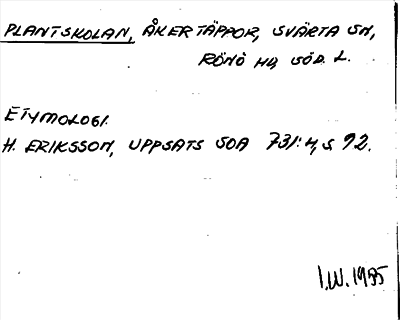 PLANTSKOLAN, ÅKERTÄPPOR, SVÄRTA SN,
RÖNÖ HD, SÖD. L.
ETYMOLOGI.
H. ERIKSSON, UPPSATS SOA 731:4, S 92.
I.W. 1955